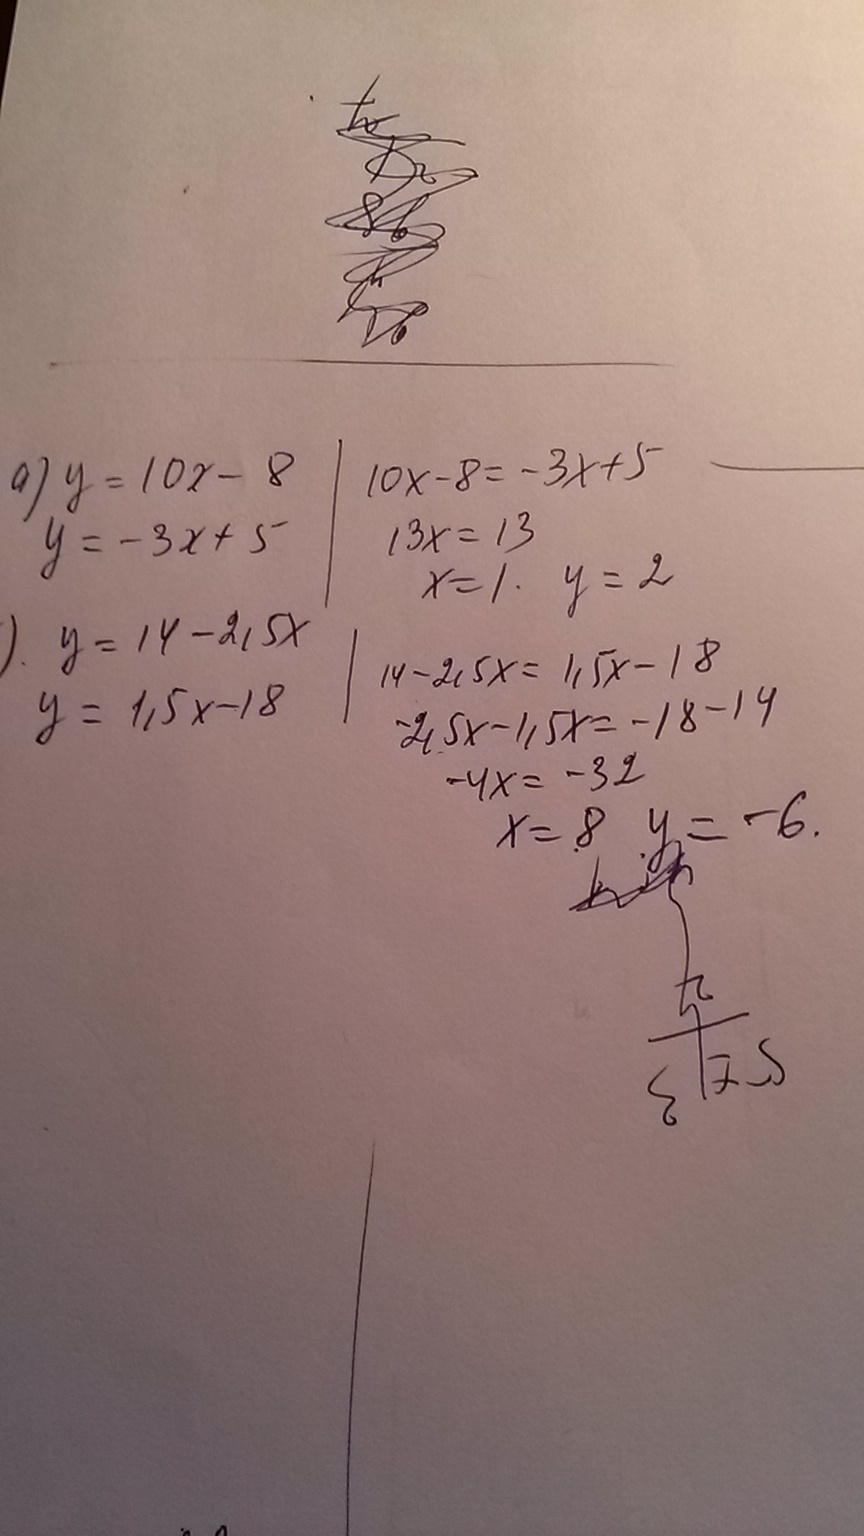 а) y = 10x - 8
y = -3x + 5
10x - 8 = -3x + 5
13x = 13
x = 1. y = 2
). y = 14 - 2,5x
y = 1,5x - 18
14 - 2,5x = 1,5x - 18
-2,5x - 1,5x = -18 - 14
-4x = -32
x = 8 y = -6.